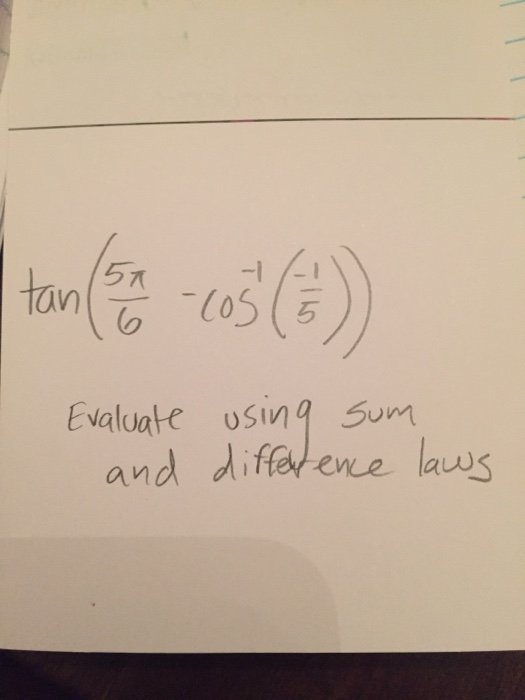 tan(5π/6 - cos⁻¹(-1/5))
Evaluate using sum
and difference laws